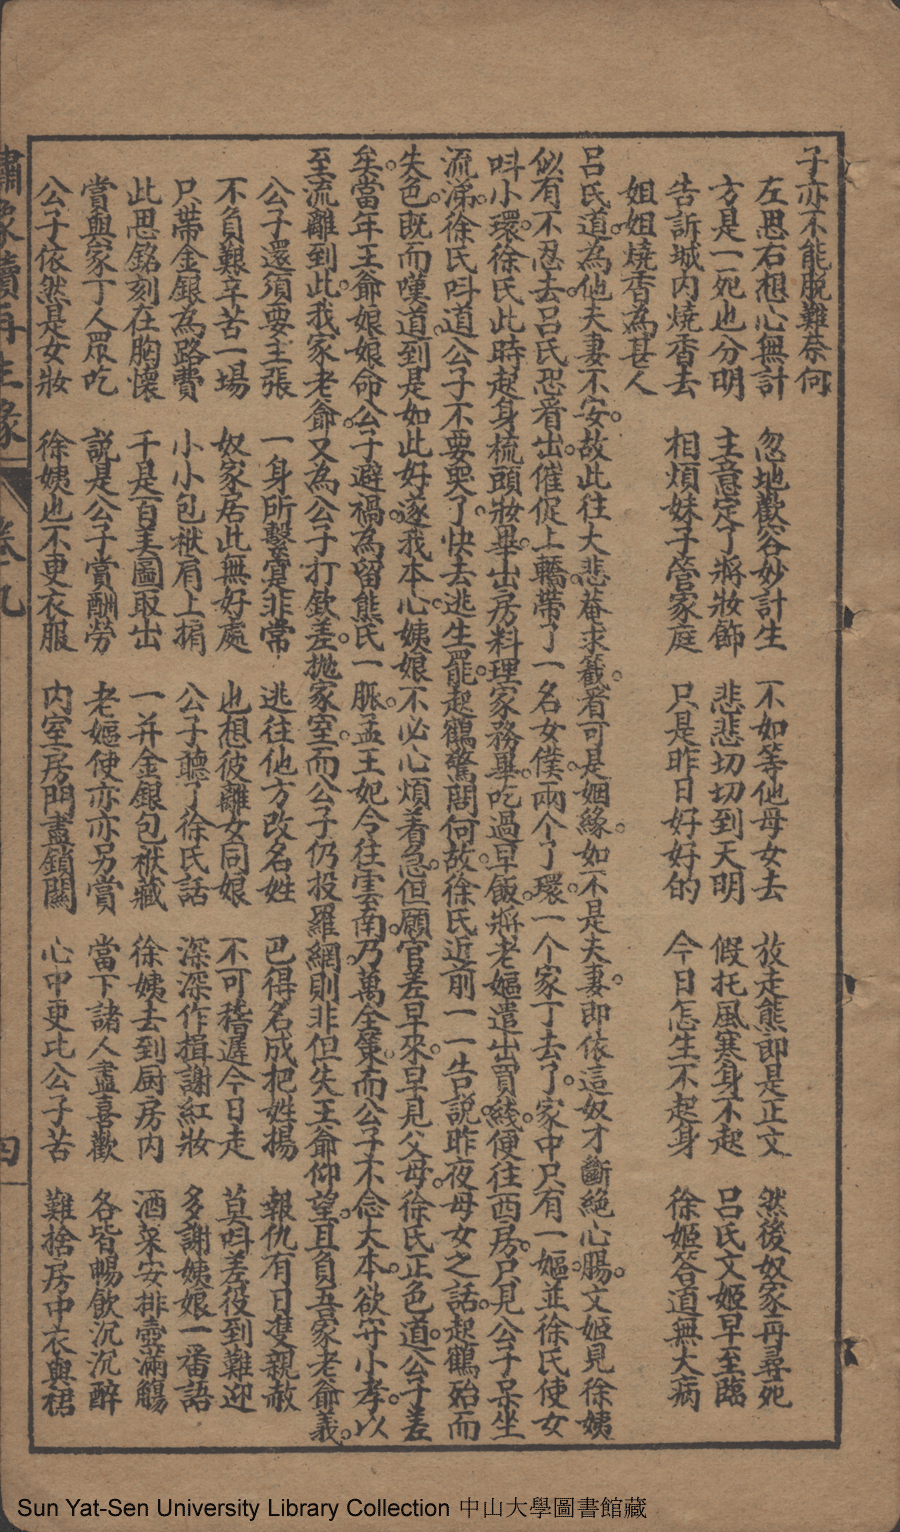 子亦不能脫難奈何
左思右想心無計　忽地歡容妙計生　不如等他母女去　放走熊郎是正文　然後奴家再尋死
方是一死也分明　主意定了將妝飾　悲悲切切到天明　假托風寒身不起　呂氏文姬早至臨
告訴城内燒香去　相煩妹子管家庭　只是昨日好好的　今日怎生不起身　徐姬答道無大病
姐姐燒香為甚人
呂氏道。為他夫妻不安。故此往大悲菴求籤。看可是姻緣。如不是夫妻。即依這奴才斷絕心腸。文姬見徐姨
似有不忍去。呂氏忍看出。催促上轎。帶了一名女僕。兩个了環。一个家丁去了。家中只有一嫗。並徐氏使女
呌小環。徐氏此時起身梳頭妝畢。出房料理家務畢。吃過早飯。將老嫗遣出買綫。便往西房。只見公子呆坐
流涕。徐氏呌道。公子不要哭了。快去逃生罷。起鶴驚問何故。徐氏近前一一告説昨夜母女之話。起鶴殆而
失色。既而嘆道。到是如此好。遂我本心。姨娘不必心煩着急。但願官差早來。早見父母。徐氏正色道。公子差
矣。當年王爺娘娘命公子避禍。為留熊氏一脈。孟王妃今往雲南。乃萬全策。而公子不念大本。欲守小孝。以
至流離到此。我家老爺。又為公子打欽差。拋家室。而公子仍投羅網。則非但失王爺仰望。且負吾家老爺義。
公子還須要主張　一身所繫實非常　逃往他方改名姓　已得名成把姓揚　報仇有日隻親赦
不負艱辛苦一場　奴家居此無好處　也想彼離女同娘　不可稽遲今日走　莫呌差役到難迎
只帶金銀為路費　小小包袱肩上掮　公子聽了徐氏話　深深作揖謝紅妝　多謝姨娘一番語
此恩銘刻在胸懷　于是百美圖取出　一并金銀包袱藏　徐姨去到厨房内　酒菜安排壺滿觴
賞與家丁人眾吃　説是公子賞酬勞　老嫗使亦亦另賞　當下諸人盡喜歡　各皆暢飲沉沉醉
公子依然是女妝　徐姨也不更衣服　内室房門盡鎖關　心中更比公子苦　難捨房中衣與裙
繡像續再生緣　卷九　四
Sun Yat-Sen University Library Collection 中山大學圖書館藏